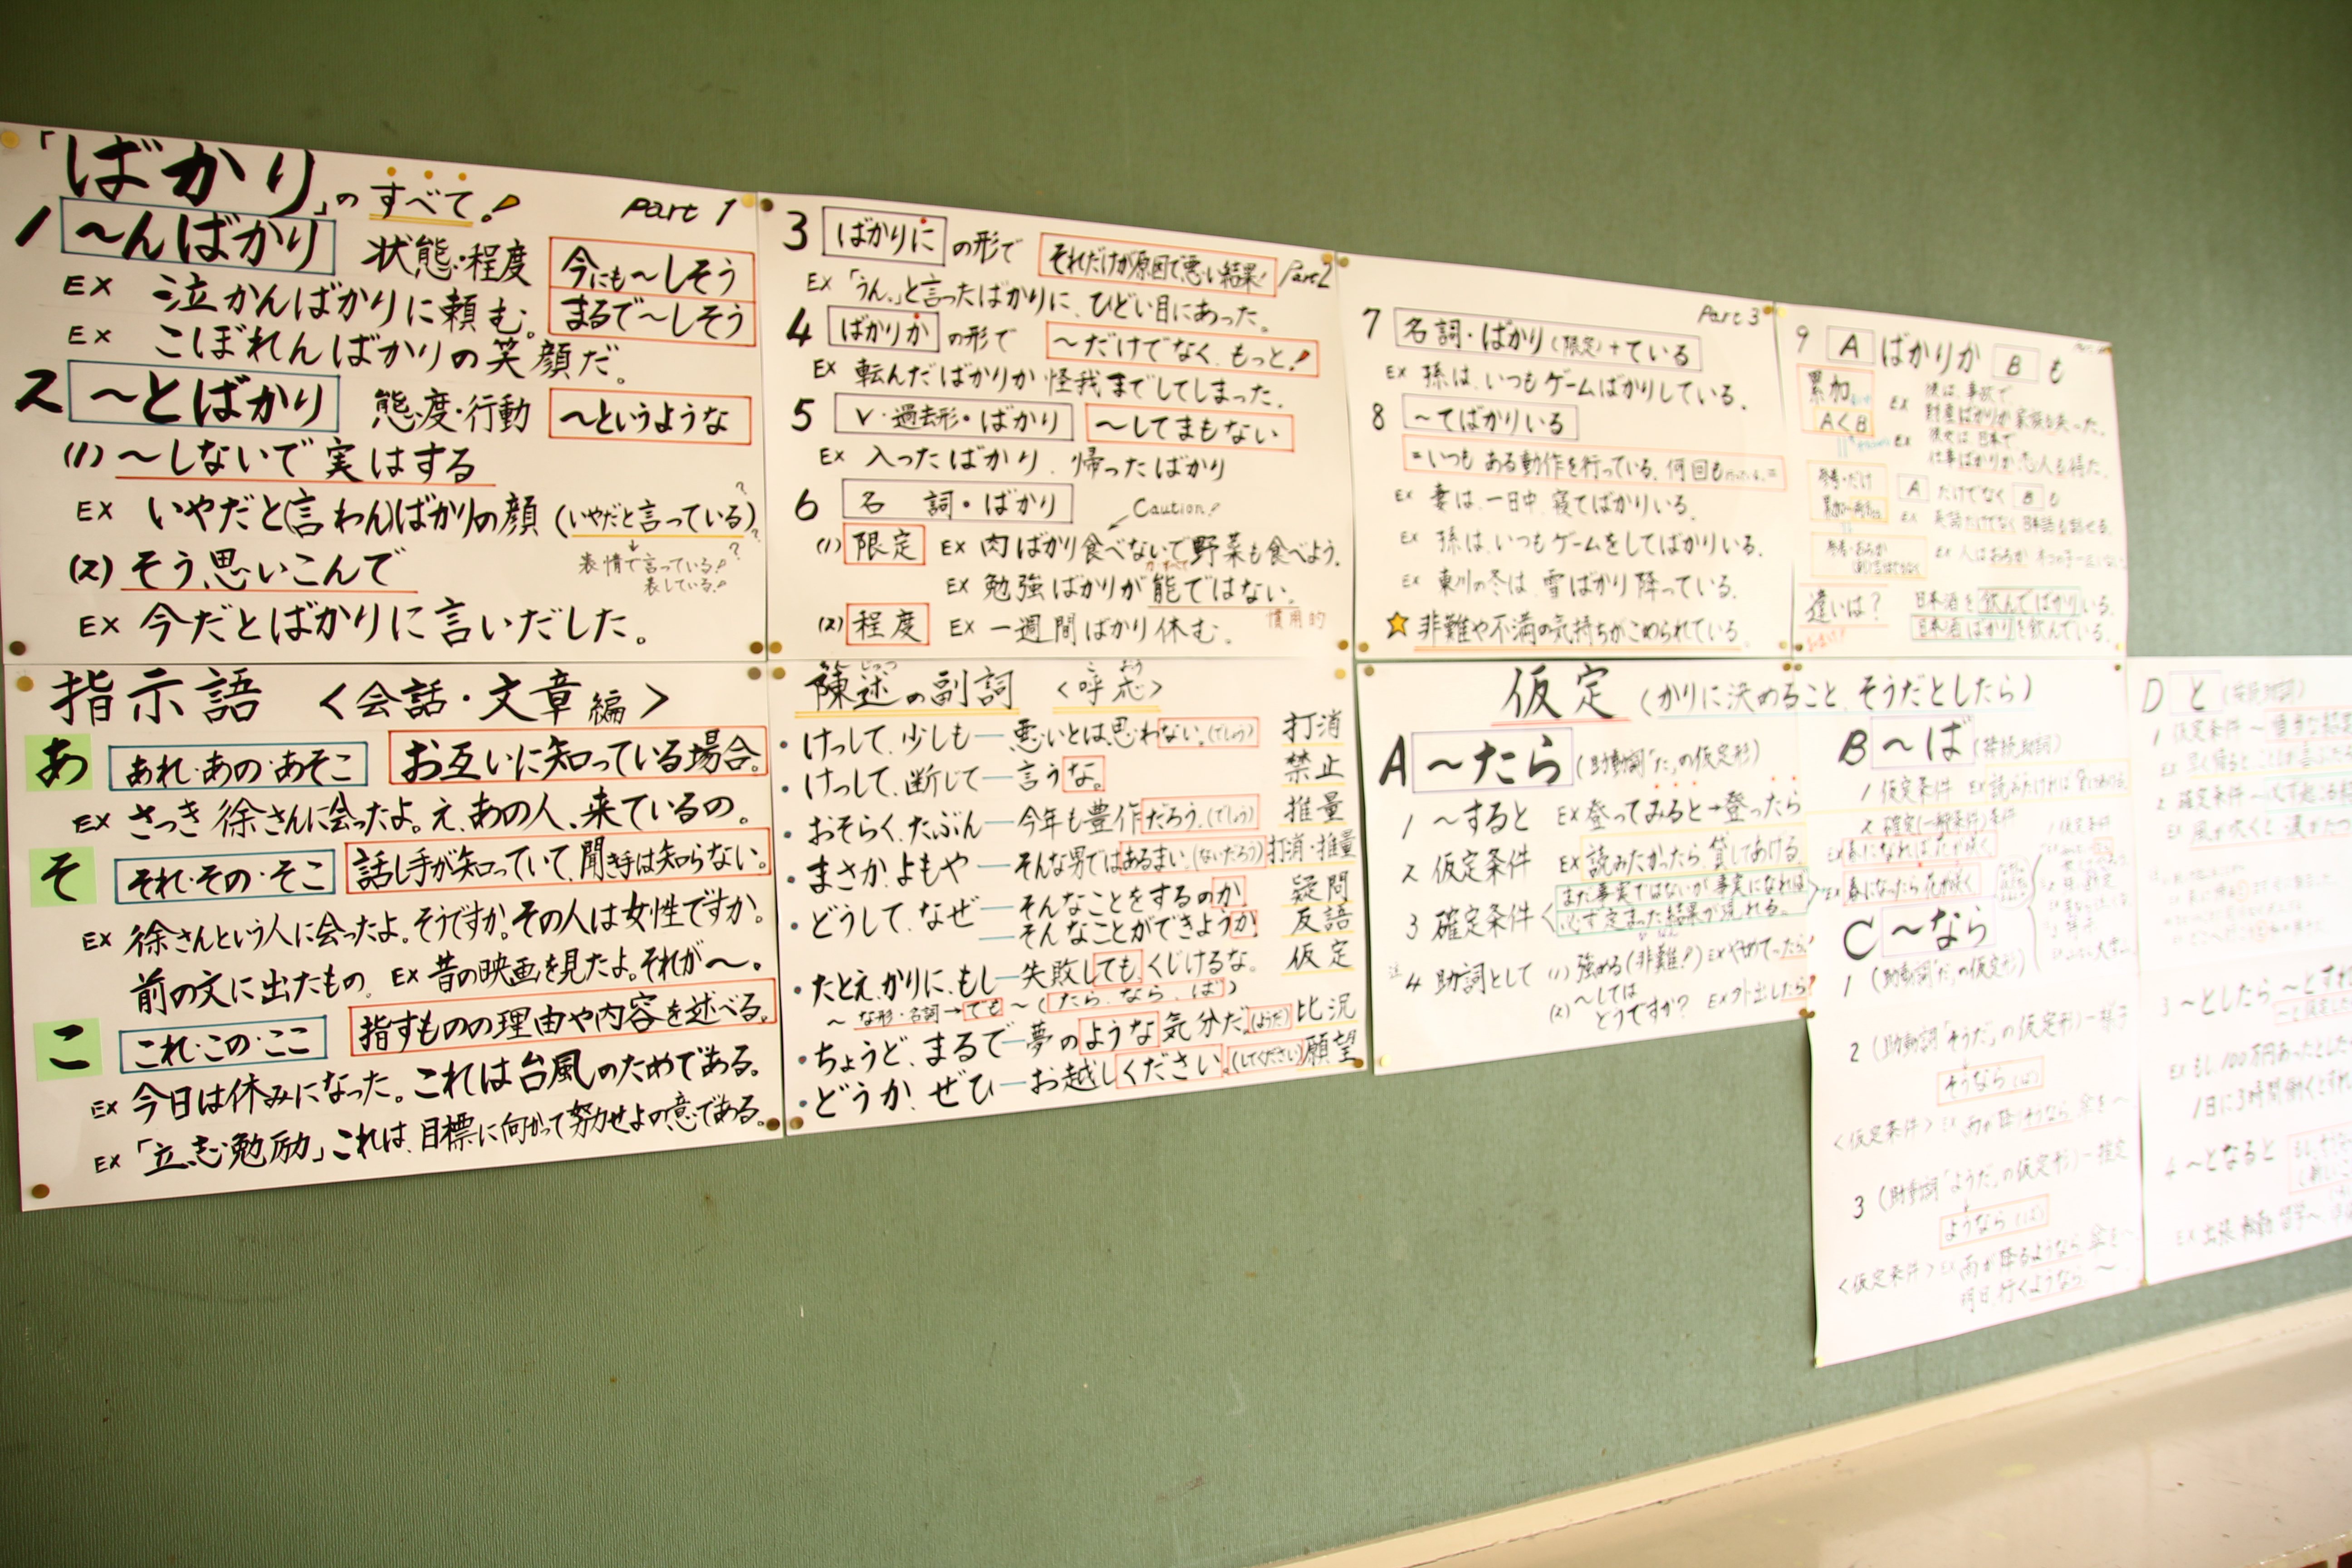 「ばかり」のすべて! Part 1
1 ～んばかり 状態・程度 今にも～しそう
まるで～しそう
EX 泣かんばかりに頼む。
EX こぼれんばかりの笑顔だ。
2 ～とばかり 態度・行動 ～というような
(1) ～しないで実はする
EX いやだと(言わん)ばかりの顔 (いやだと言っている)
表情で言っている!?
表している!
(2) そう思いこんで
EX 今だとばかりに言いだした。
3 ばかりに の形で それだけが原因で悪い結果! Part 2
EX 「うん。」と言ったばかりに、ひどい目にあった。
4 ばかりか の形で ～だけでなく、もっと!
EX 転んだばかりか怪我までしてしまった。
5 V・過去形・ばかり ～してまもない
EX 入ったばかり、帰ったばかり
6 名詞・ばかり Caution!
(1) 限定 EX 肉ばかり食べないで野菜も食べよう。
EX 勉強ばかりが能ではない。
慣用的
(2) 程度 EX 一週間ばかり休む。
Part 3
7 名詞・ばかり(限定)+ている
EX 孫は、いつもゲームばかりしている。
8 ～てばかりいる
=いつもある動作を行っている、何回も
EX 妻は、一日中、寝てばかりいる。
EX 孫は、いつもゲームをしてばかりいる。
EX 東川の冬は、雪ばかり降っている。
☆非難や不満の気持ちがこめられている。
9 A ばかりか B も
累加
A<B
EX 彼は、事故で
財産ばかりか家族も失った。
EX 彼女は、日本で
仕事ばかりか恋人も得た。
A だけでなく B も
EX 英語だけでなく日本語も話せる。
違いは? 日本酒を飲んでばかりいる。
日本酒ばかりを飲んでいる。
指示語 <会話・文章編>
あ あれ・あの・あそこ お互いに知っている場合。
EX さっき徐さんに会ったよ。え、あの人、来ているの。
そ それ・その・そこ 話し手が知っていて、聞き手は知らない。
EX 徐さんという人に会ったよ。そうですか。その人は女性ですか。
前の文に出たもの。 EX 昔の映画を見たよ。それが～。
こ これ・この・ここ 指すものの理由や内容を述べる。
EX 今日は休みになった。これは台風のためである。
EX 「立志勉励」これは、目標に向かって努力せよの意である。
陳述の副詞 <呼応>
・けっして、少しも―悪いとは思わない。(でしょう) 打消
・けっして、断じて―言うな。 禁止
・おそらく、たぶん―今年も豊作だろう。(でしょう) 推量
・まさか、よもや―そんな男ではあるまい。(ないだろう) 打消・推量
・どうして、なぜ―そんなことをするのか 疑問
―そんなことができようか 反語
・たとえ、かりに、もし―失敗しても、くじけるな。 仮定
～な形・名詞→でも～(たら、なら、ば)
・ちょうど、まるで―夢のような気分だ。(ようだ) 比況
・どうか、ぜひ―お越しください。(してください) 願望
仮定 (かりに決めること、そうだとしたら)
A ～たら (助動詞「た」の仮定形)
1 ～すると EX 登ってみると→登ったら
2 仮定条件 EX 読みたかったら、貸してあげる
3 確定条件 まだ事実ではないが事実になれば
必ず定まった結果が現れる。
EX 春になったら花が咲く
4 助詞として (1) 強める(非難!) EX やめてったら!
(2) ～しては
どうですか? EX 外出したら?
B ～ば (接続助詞)
1 仮定条件 EX 読みたければ
2 確定(一般条件)条件
EX 春になれば花が咲く
C ～なら
1 (助動詞「だ」の仮定形)
2 (助動詞「そうだ」の仮定形)―様子
そうなら(ば)
<仮定条件> EX 雨が降りそうなら、傘を～
3 (助動詞「ようだ」の仮定形)―推定
ようなら(ば)
<仮定条件> EX 雨が降るようなら、傘を～
明日、行くようなら、～
D と (接続助詞)
1 仮定条件～
2 確定条件～
3 ～としたら
EX もし100万円あったとした
1日に3時間働くとすれ
4 ～となると
EX 出張、転勤、留学～